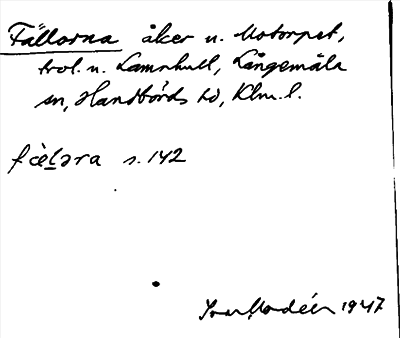 Fällorna åker u. Motorpet,
trol. u. Lamnhult, Långemåla
sn, Handbörds hd, Klm. l.
fɛ̀lǝra s. 142
Ivar Modéer 1947